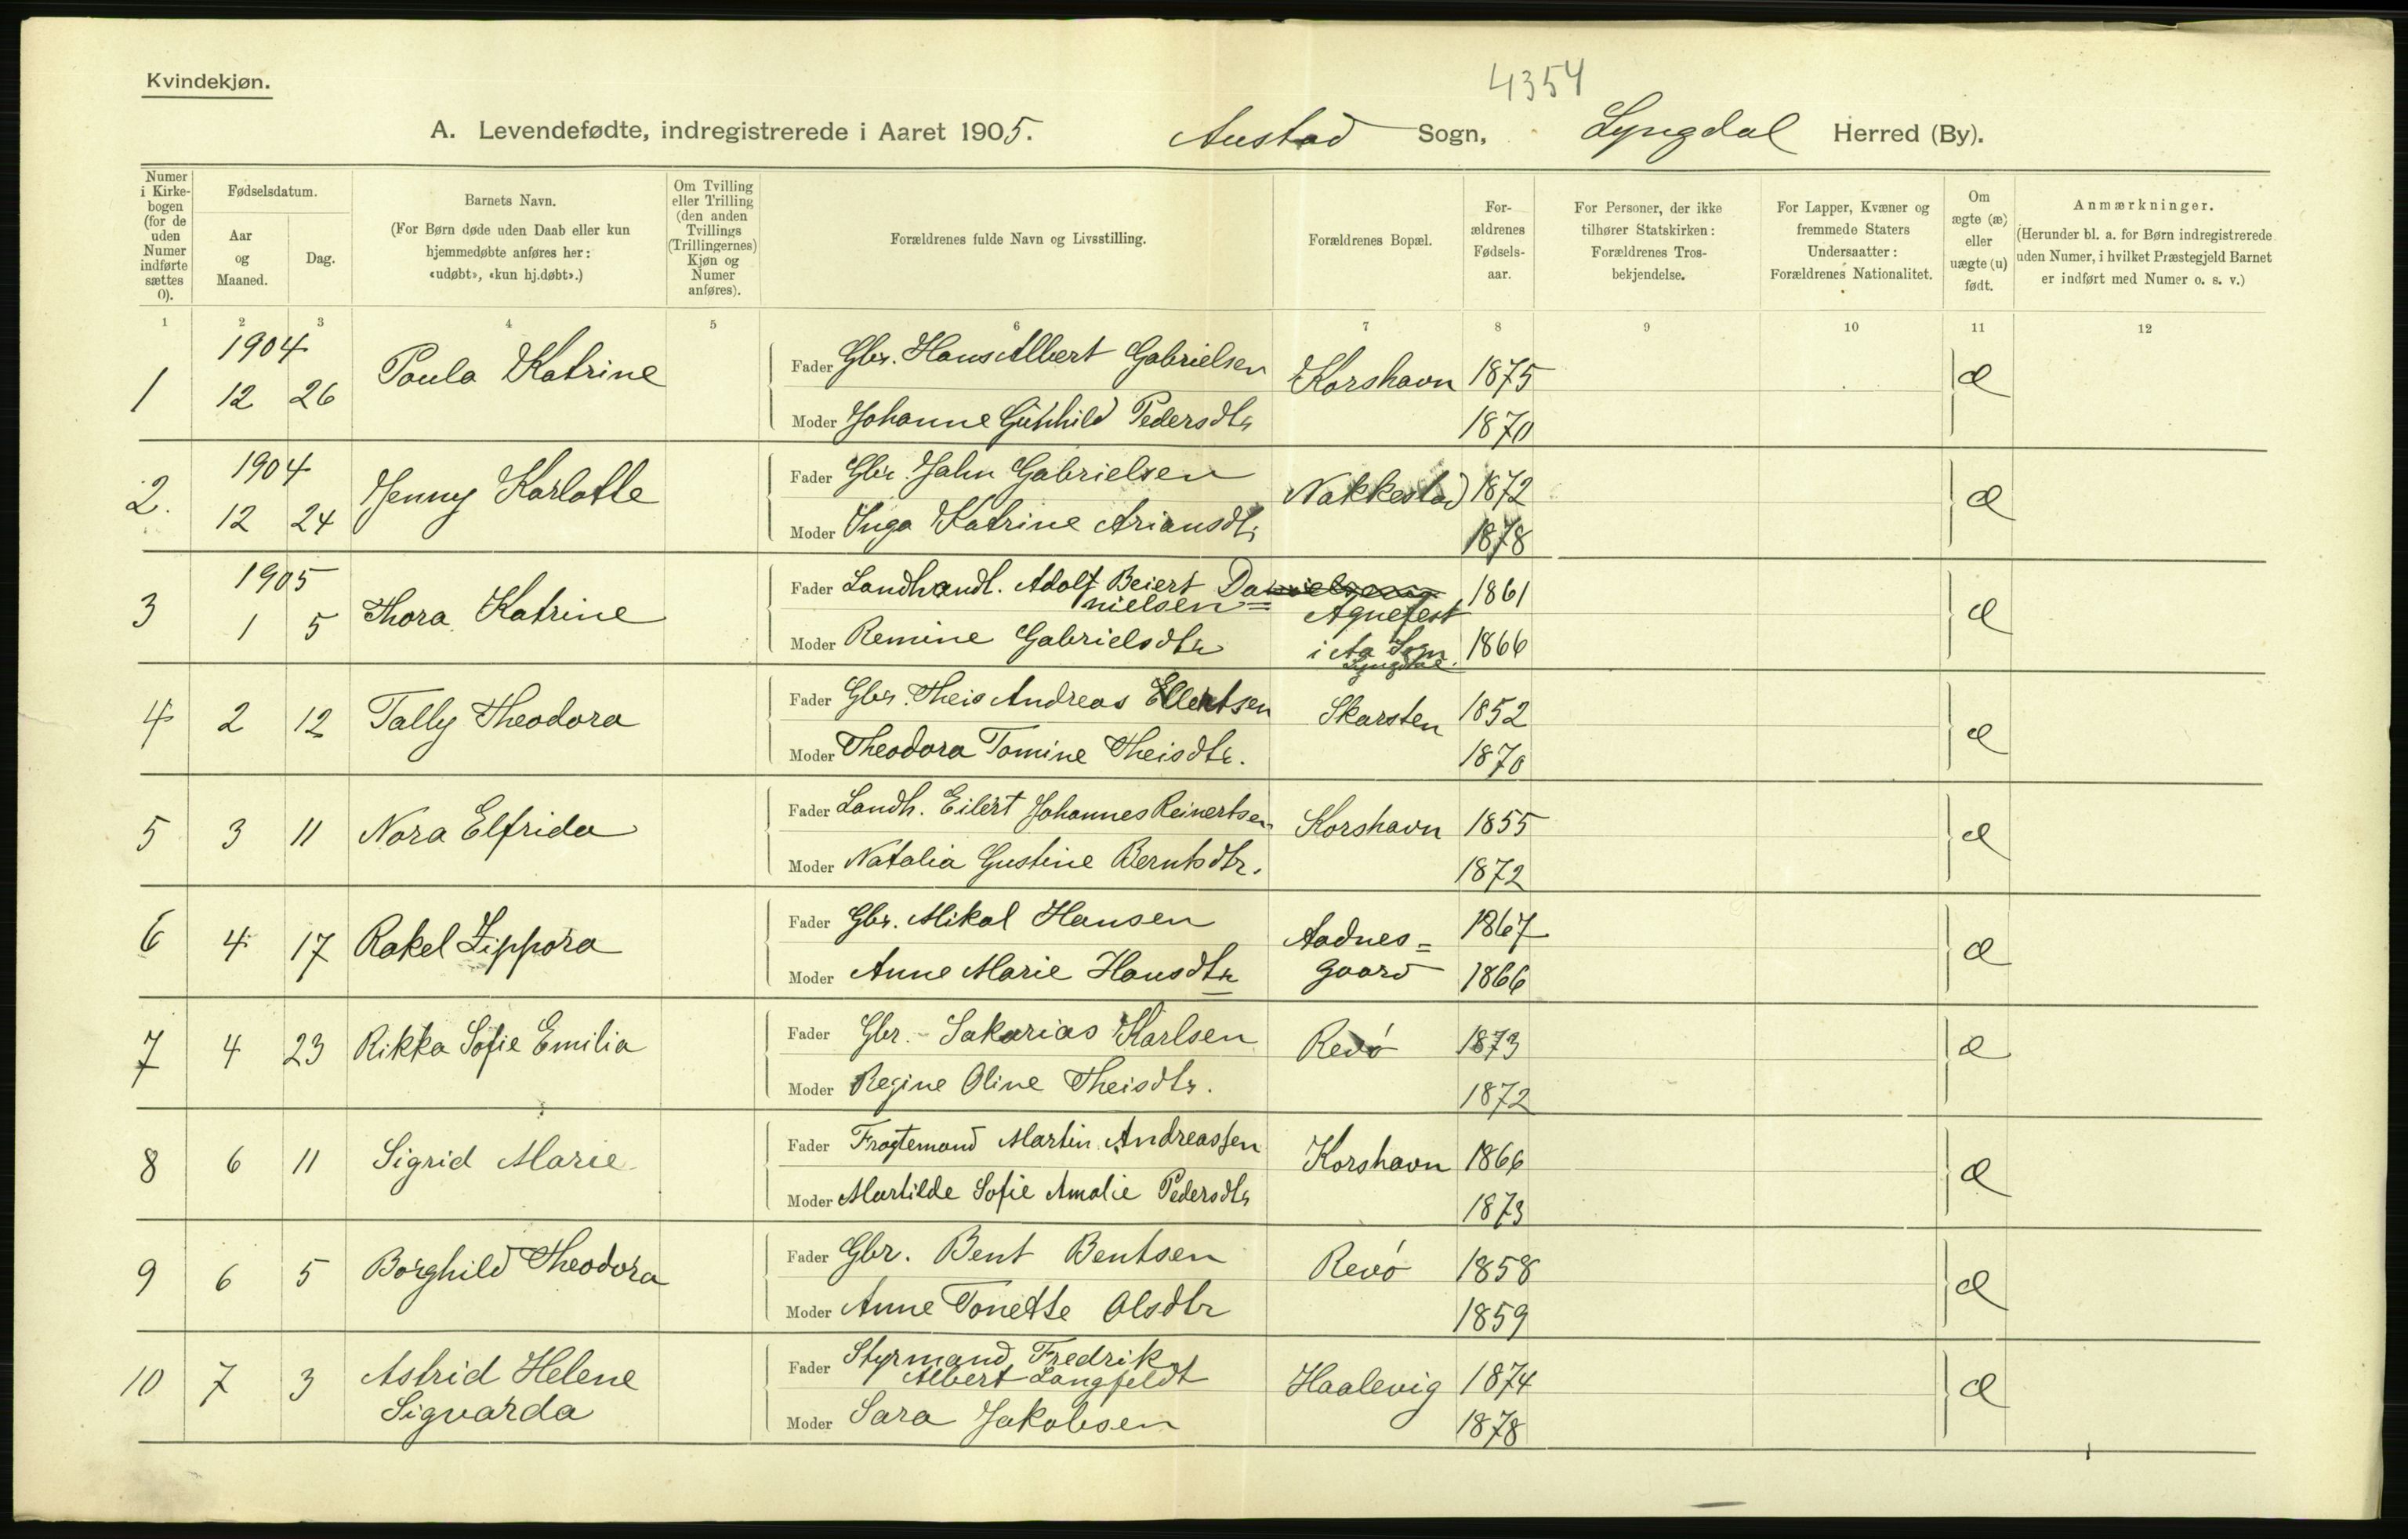 Kvindekjøn.
4354
A. Levendefødte, indregistrerede i Aaret 1905. Austad Sogn, Lyngdal Herred (By).
Numer i Kirkebogen (for de uden Numer indførte sættes 0).
Fødselsdatum.
Aar og Maaned.
Dag.
Barnets Navn.
(For Børn døde uden Daab eller kun hjemmedøbte anføres her: «udøbt», «kun hj.døbt».)
Om Tvilling eller Trilling (den anden Tvillings (Trillingernes) Kjøn og Numer anføres).
Forældrenes fulde Navn og Livsstilling.
Forældrenes Bopæl.
Forældrenes Fødselsaar.
For Personer, der ikke tilhører Statskirken: Forældrenes Trosbekjendelse.
For Lapper, Kvæner og fremmede Staters Undersaatter: Forældrenes Nationalitet.
Om ægte (æ) eller uægte (u) født.
Anmærkninger.
(Herunder bl. a. for Børn indregistrerede uden Numer, i hvilket Præstegjeld Barnet er indført med Numer o. s. v.)
1 2 3 4 5 6 7 8 9 10 11 12
1904
1 12 26 Paula Katrine Fader Gbr. Hans Albert Gabrielsen Korshavn 1875 æ
Moder Johanne Gunhild Pedersdtr 1870
1904
2. 12 24 Jenny Karlotte Fader Gbr. Jahn Gabrielsen Nakkestad 1872 æ
Moder Inga Katrine Ariansdtr 1878
1905
3 1 5 Thora Katrine Fader Landhandl. Adolf Beiert Danielsen 1861 æ
nielsen= Agnefest
Moder Remine Gabrielsdtr i Aa Sogn 1866
Lyngdal.
4 2 12 Tally Theodora Fader Gbr. Theis Andreas Ellertsen Skarsten 1852 æ
Moder Theodora Tomine Theisdtr. 1870
5 3 11 Nora Elfrida Fader Landh. Eilert Johannes Reinertsen Korshavn 1855 æ
Moder Natalia Gustine Berntsdtr. 1872
6 4 17 Rakel Zippora Fader Gbr. Mikal Hansen Aadnes= 1867 æ
Moder Anne Marie Hansdtr gaard 1866
7 4 23 Rikka Sofie Emilia Fader Gbr. Sakarias Karlsen Revø 1873 æ
Moder Regine Oline Theisdtr. 1872
8 6 11 Sigrid Marie Fader Fragtemand Martin Andreassen Korshavn 1866 æ
Moder Martilde Sofie Amalie Pedersdtr 1873
9 6 5 Borghild Theodora Fader Gbr. Bent Bentsen Revø 1858 æ
Moder Anne Tonette Olsdtr 1859
10 7 3 Astrid Helene Fader Styrmand Fredrik
Albert Langfeldt Haalevig 1874 æ
Sigvarda Moder Sara Jakobsen 1878